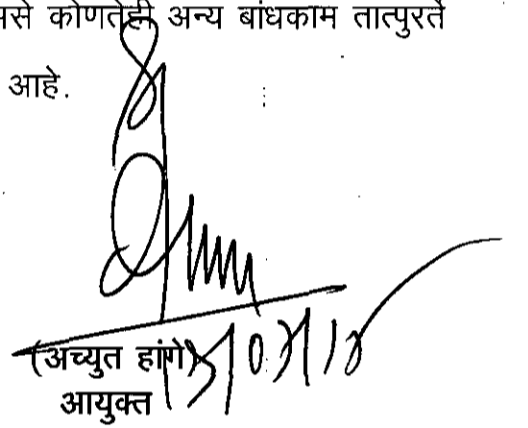 से कोणतेही अन्य बांधकाम तात्पुरते
आहे.
(अच्युत हांगे)
आयुक्त